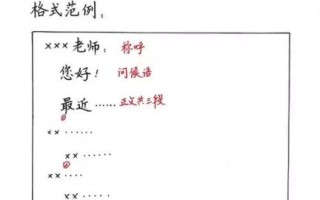 格式范例：
×××老师：称呼
您好！问候语
最近……正文共三段
××……
××……
××……
××……